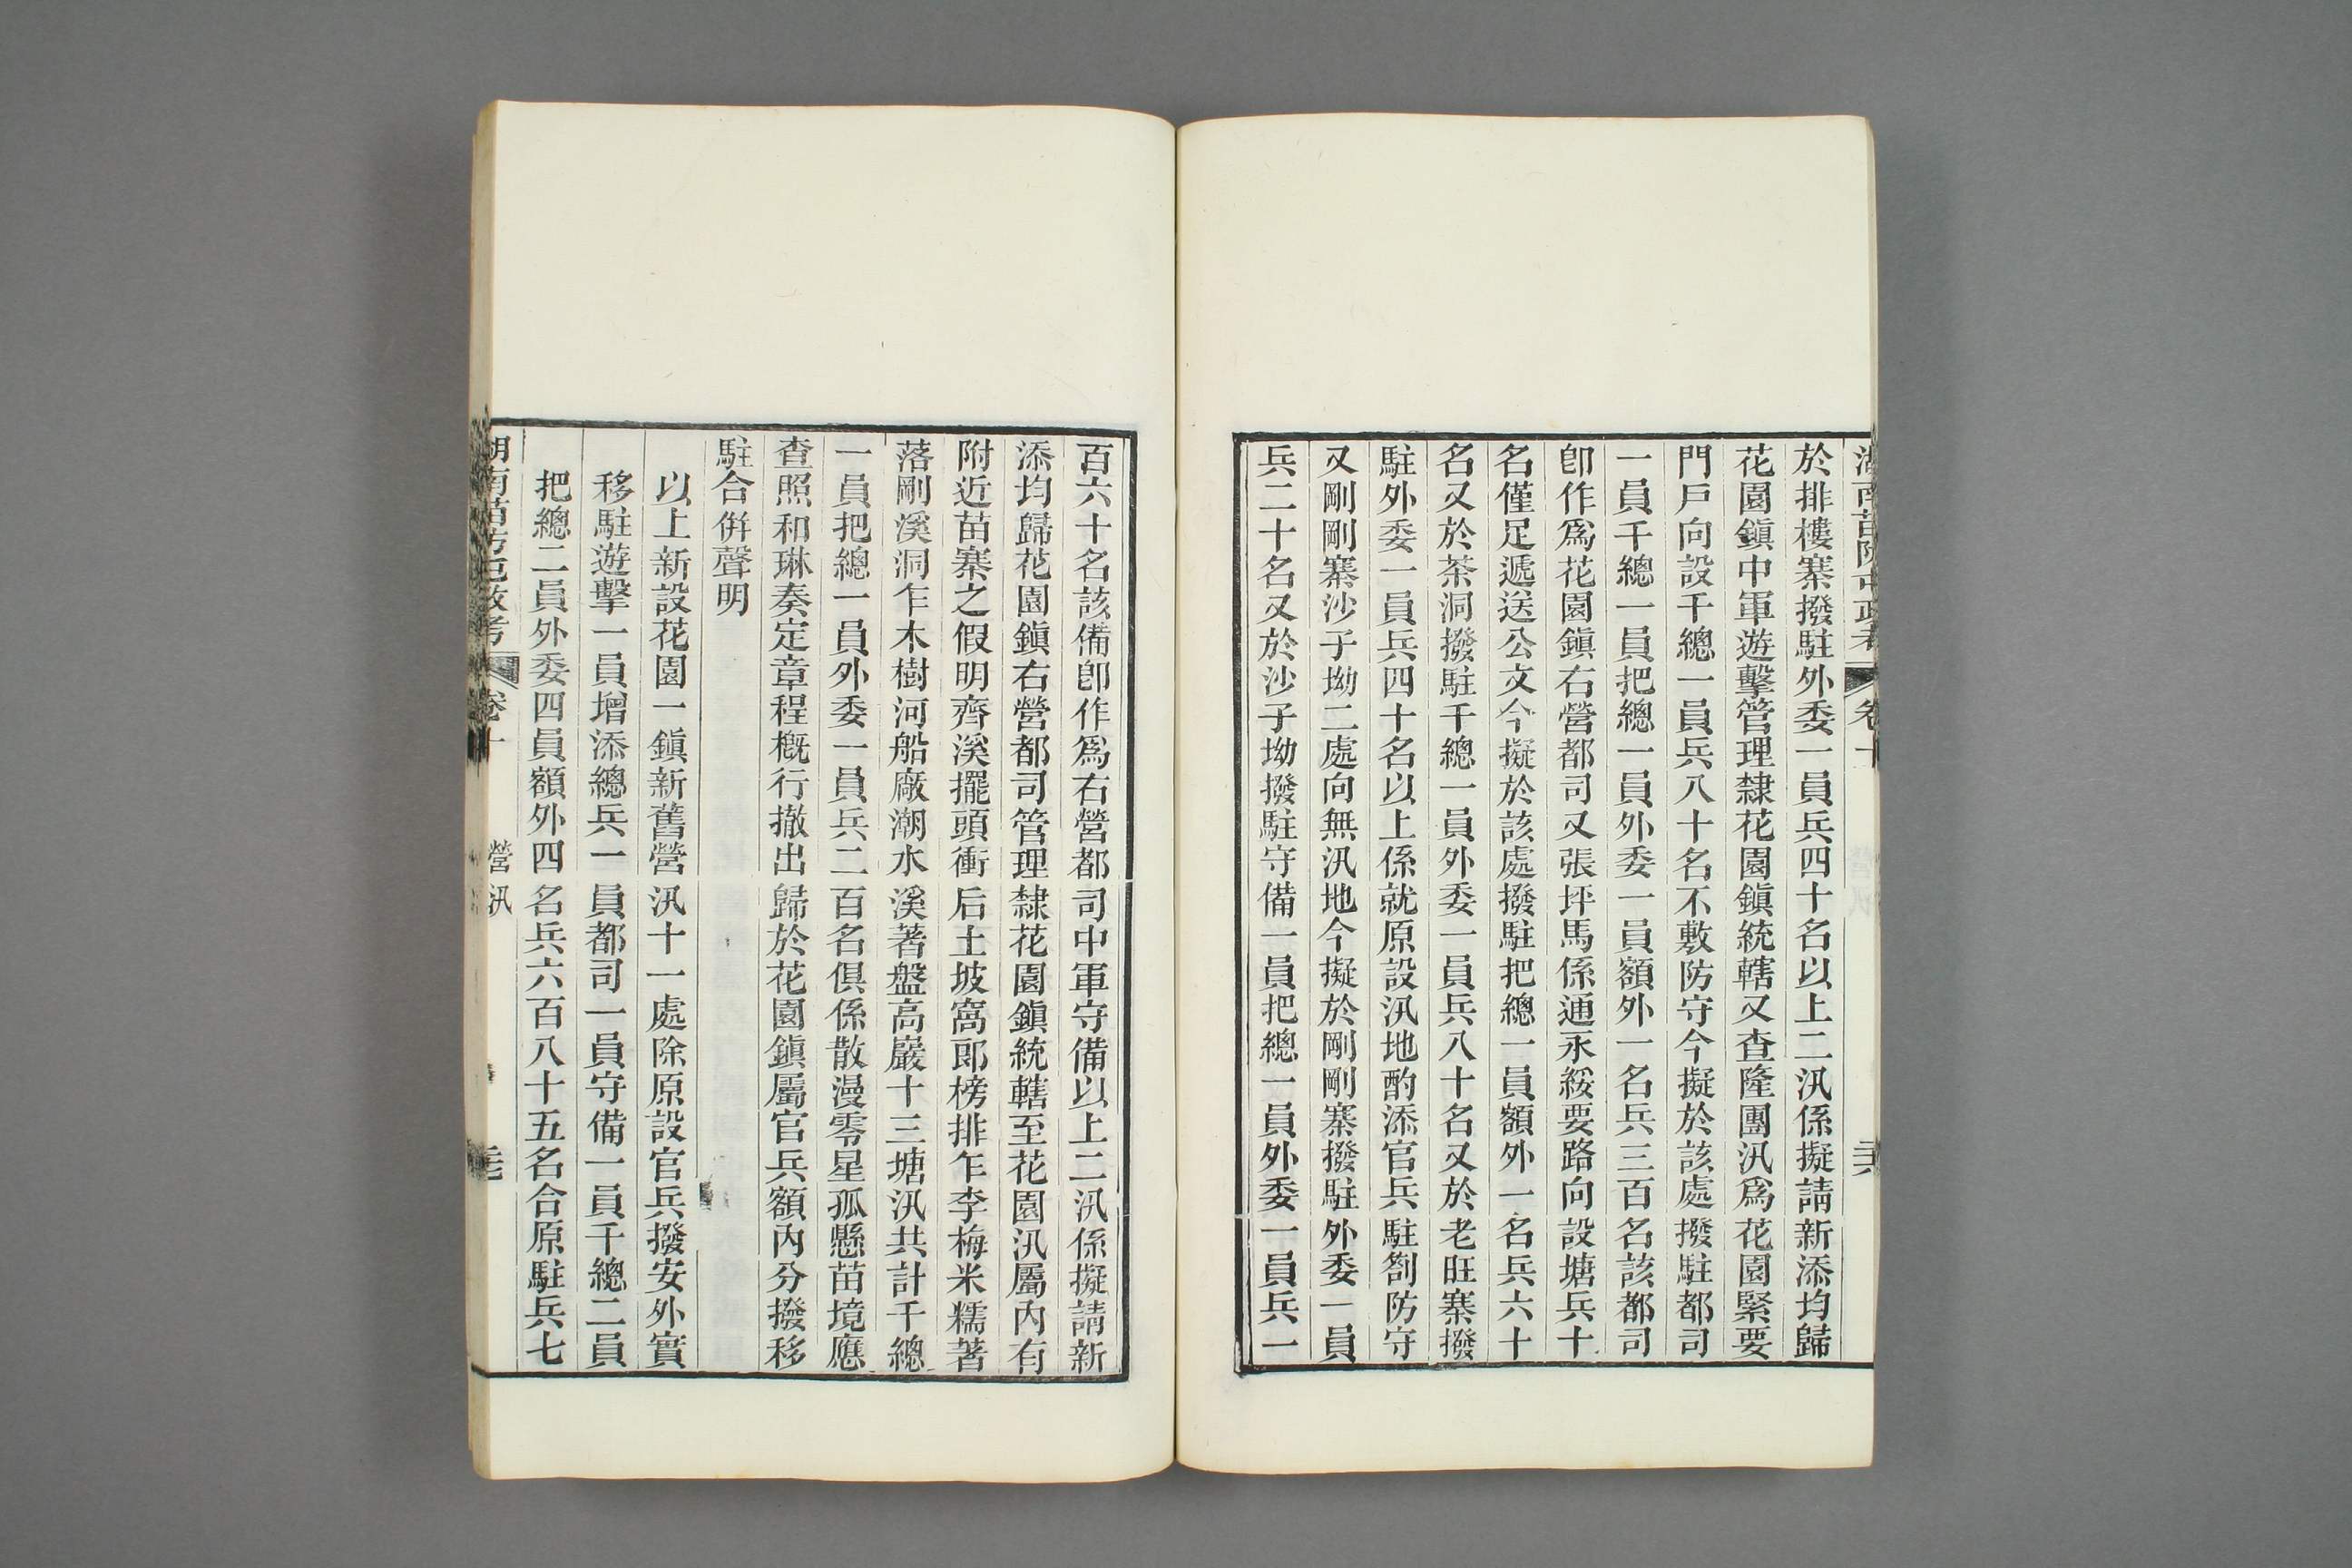 湖南苗防屯政考 卷十 三六
於排樓寨撥駐外委一員兵四十名以上二汛係擬請新添均歸
花園鎭中軍遊擊管理隸花園鎭統轄又查隆團汛爲花園緊要
門戶向設千總一員兵八十名不敷防守今擬於該處撥駐都司
一員千總一員把總一員外委一員額外一名兵三百名該都司
卽作爲花園鎭右營都司又張坪馬係通永綏要路向設塘兵十
名僅足遞送公文今擬於該處撥駐把總一員額外一名兵六十
名又於茶洞撥駐千總一員外委一員兵八十名又於老旺寨撥
駐外委一員兵四十名以上係就原設汛地酌添官兵駐劄防守
又剛剛寨沙子坳二處向無汛地今擬於剛剛寨撥駐外委一員
兵二十名又於沙子坳撥駐守備一員把總一員外委一員兵一
百六十名該備卽作爲右營都司中軍守備以上二汛係擬請新
添均歸花園鎭右營都司管理隸花園鎭統轄至花園汛屬內有
附近苗寨之假明齊溪擺頭衝后土坡窩郎榜排乍李梅米糯著
落剛溪洞乍木樹河船廠潮水溪著盤高巖十三塘汛共計千總
一員把總一員外委一員兵二百名俱係散漫零星孤懸苗境應
查照和琳奏定章程概行撤出歸於花園鎭屬官兵額內分撥移
駐合倂聲明
以上新設花園一鎭新舊營汛十一處除原設官兵撥安外實
移駐遊擊一員增添總兵一員都司一員守備一員千總二員
把總二員外委四員額外四名兵六百八十五名合原駐兵七
湖南苗防屯政考 卷十 營汛 三七